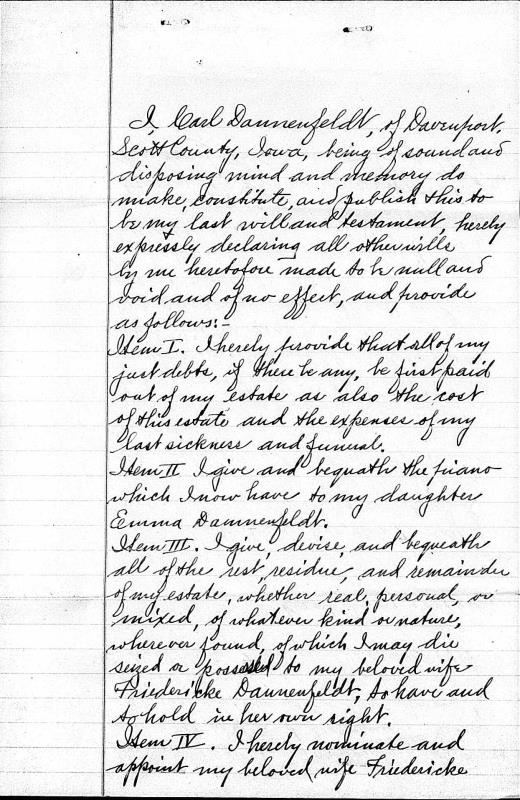 I, Carl Dannenfeldt, of Davenport,
Scott County, Iowa, being of sound and
disposing mind and memory do
make, constitute, and publish this to
be my last will and testament, hereby
expressly declaring all other wills
by me heretofore made to be null and
void and of no effect, and provide
as follows:-
Item I. I hereby provide that all of my
just debts, if there be any, be first paid
out of my estate as also the cost
of this estate and the expenses of my
last sickness and funeral.
Item II I give and bequath the piano
which I now have to my daughter
Emma Dannenfeldt.
Item III. I give, devise, and bequeath
all of the rest, residue, and remainder
of my estate, whether real, personal, or
mixed, of whatever kind or nature,
wherever found, of which I may die
seized or possessed to my beloved wife
Friedericke Dannenfeldt, to have and
to hold in her own right.
Item IV. I hereby nominate and
appoint my beloved wife Friedericke